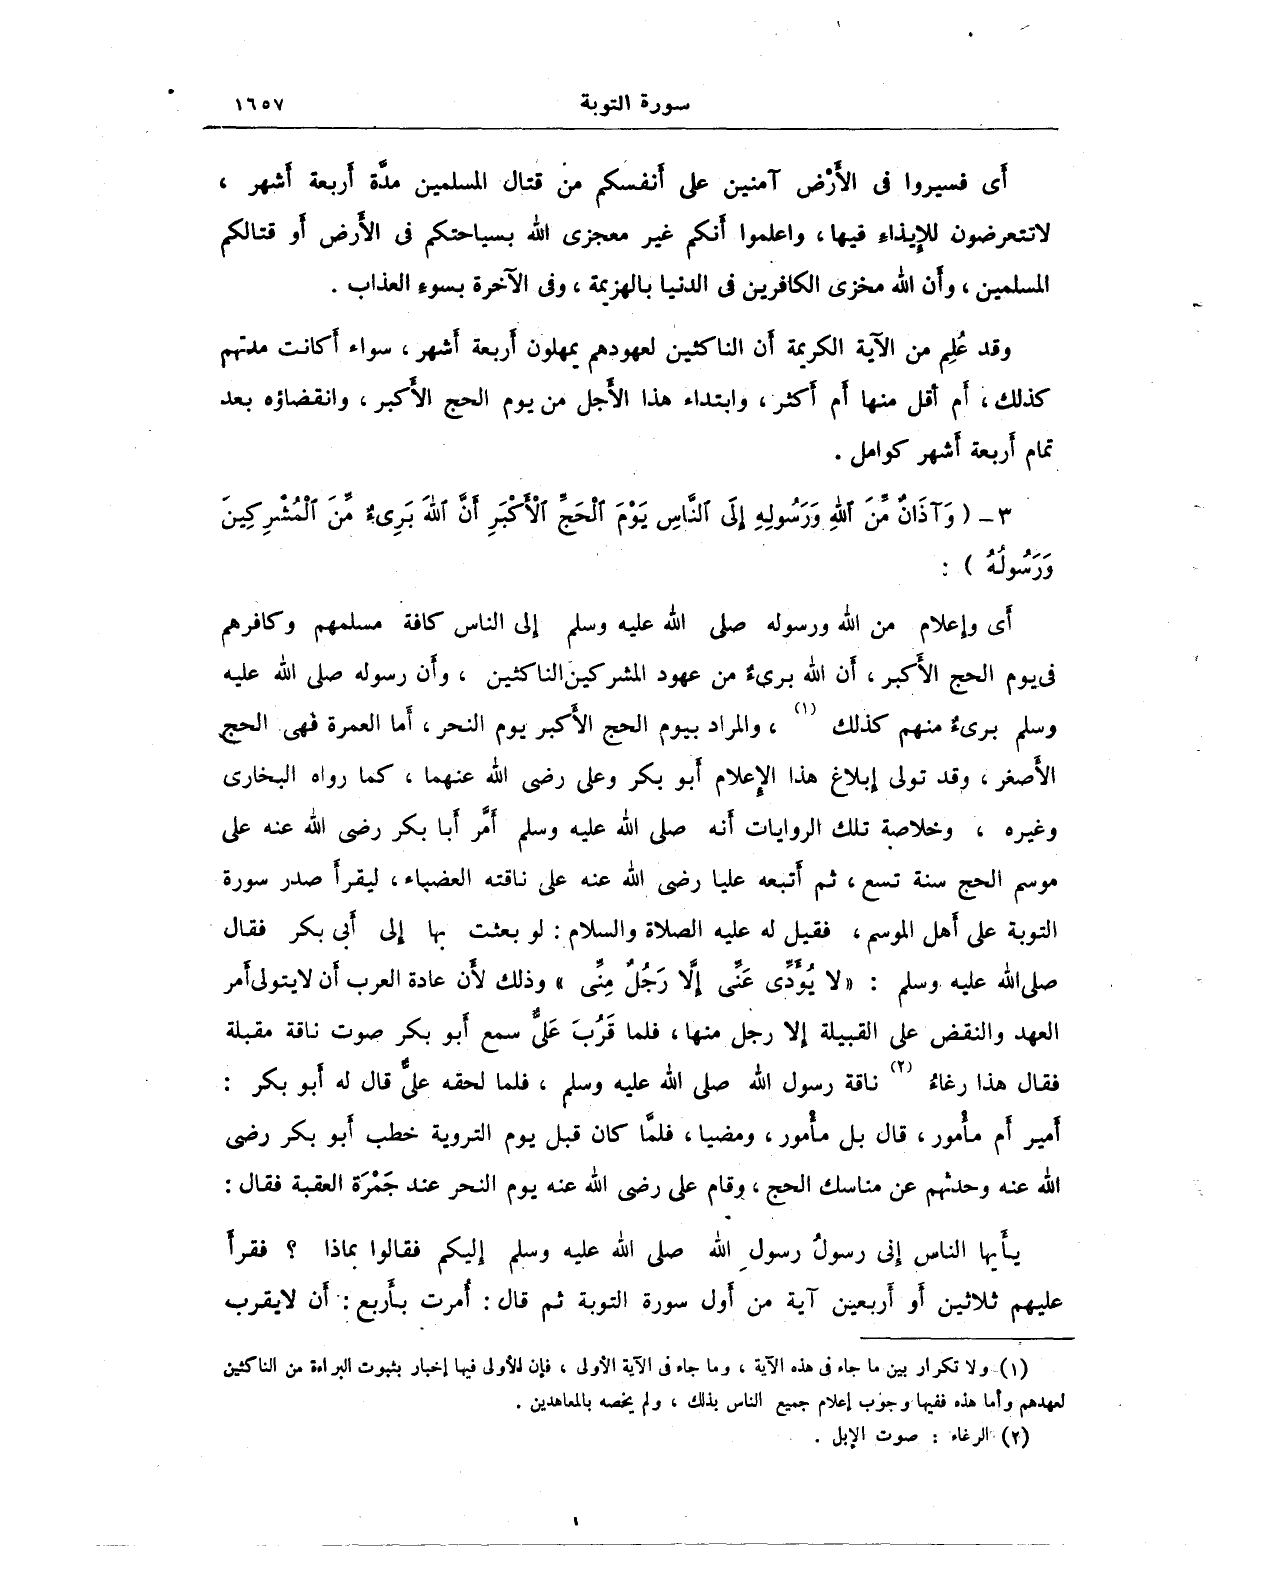 سورة التوبة ١٦٥٧
أى فسيروا فى الأَرْض آمنين على أنفسكم من قتال المسلمين مدَّة أربعة أشهر ،
لاتتعرضون للإيذاء فيها، واعلموا أنكم غير معجزى الله بسياحتكم فى الأرض أو قتالكم
المسلمين ، وأن الله مخزى الكافرين فى الدنيا بالهزيمة ، وفى الآخرة بسوء العذاب .
وقد عُلِم من الآية الكريمة أن الناكثين لعهودهم يمهلون أربعة أشهر ، سواء أكانت مدتهم
كذلك ، أم أقل منها أم أكثر ، وابتداء هذا الأجل من يوم الحج الأكبر ، وانقضاؤه بعد
تمام أربعة أشهر كوامل .
٣ – ( وَآذَانٌ مِّنَ ٱللهِ وَرَسُولِهِ إِلَى ٱلنَّاسِ يَوْمَ ٱلْحَجِّ ٱلْأَكْبَرِ أَنَّ ٱللهَ بَرِىءٌ مِّنَ ٱلْمُشْرِكِينَ
وَرَسُولُهُ ) :
أى وإعلام من الله ورسوله صلى الله عليه وسلم إلى الناس كافة مسلمهم وكافرهم
فى يوم الحج الأكبر ، أن الله برىءٌ من عهود المشركين الناكثين ، وأن رسوله صلى الله عليه
وسلم برىءٌ منهم كذلك (١) ، والمراد بيوم الحج الأكبر يوم النحر ، أما العمرة فهى الحج
الأصغر ، وقد تولى إبلاغ هذا الإعلام أبو بكر وعلى رضى الله عنهما ، كما رواه البخارى
وغيره ، وخلاصة تلك الروايات أنه صلى الله عليه وسلم أمَّر أبا بكر رضى الله عنه على
موسم الحج سنة تسع ، ثم أتبعه عليا رضى الله عنه على ناقته العضباء ، ليقرأ صدر سورة
التوبة على أهل الموسم ، فقيل له عليه الصلاة والسلام : لو بعثت بها إلى أبى بكر فقال
صلى الله عليه وسلم : « لا يُؤَدِّى عَنِّى إِلَّا رَجُلٌ مِنِّى » وذلك لأن عادة العرب أن لايتولى أمر
العهد والنقض على القبيلة إلا رجل منها ، فلما قَرُبَ عَلىٌّ سمع أبو بكر صوت ناقة مقبلة
فقال هذا رغاءُ (٢) ناقة رسول الله صلى الله عليه وسلم ، فلما لحقه علىٌّ قال له أبو بكر :
أمير أم مأْمور ، قال بل مأْمور ، ومضيا ، فلمَّا كان قبل يوم التروية خطب أبو بكر رضى
الله عنه وحدثهم عن مناسك الحج ، وقام على رضى الله عنه يوم النحر عند جَمْرَة العقبة فقال :
يأيها الناس إنى رسولُ رسول الله صلى الله عليه وسلم إليكم فقالوا بماذا ؟ فقرأ
عليهم ثلاثين أو أربعين آية من أول سورة التوبة ثم قال : أُمرت بأربع : أن لايقرب
(١) ولا تكرار بين ما جاء فى هذه الآية ، وما جاء فى الآية الأولى ، فإن للأولى فيها إخبار بثبوت البراءة من الناكثين
لعهدهم وأما هذه ففيها وجوب إعلام جميع الناس بذلك ، ولم يخصه بالمعاهدين .
(٢) الرغاء : صوت الإبل .